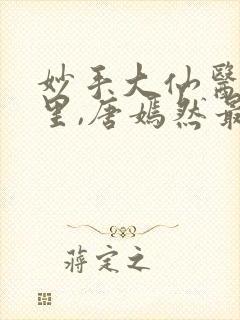 妙手大仙醫
里,唐嫣然最
蔣定之